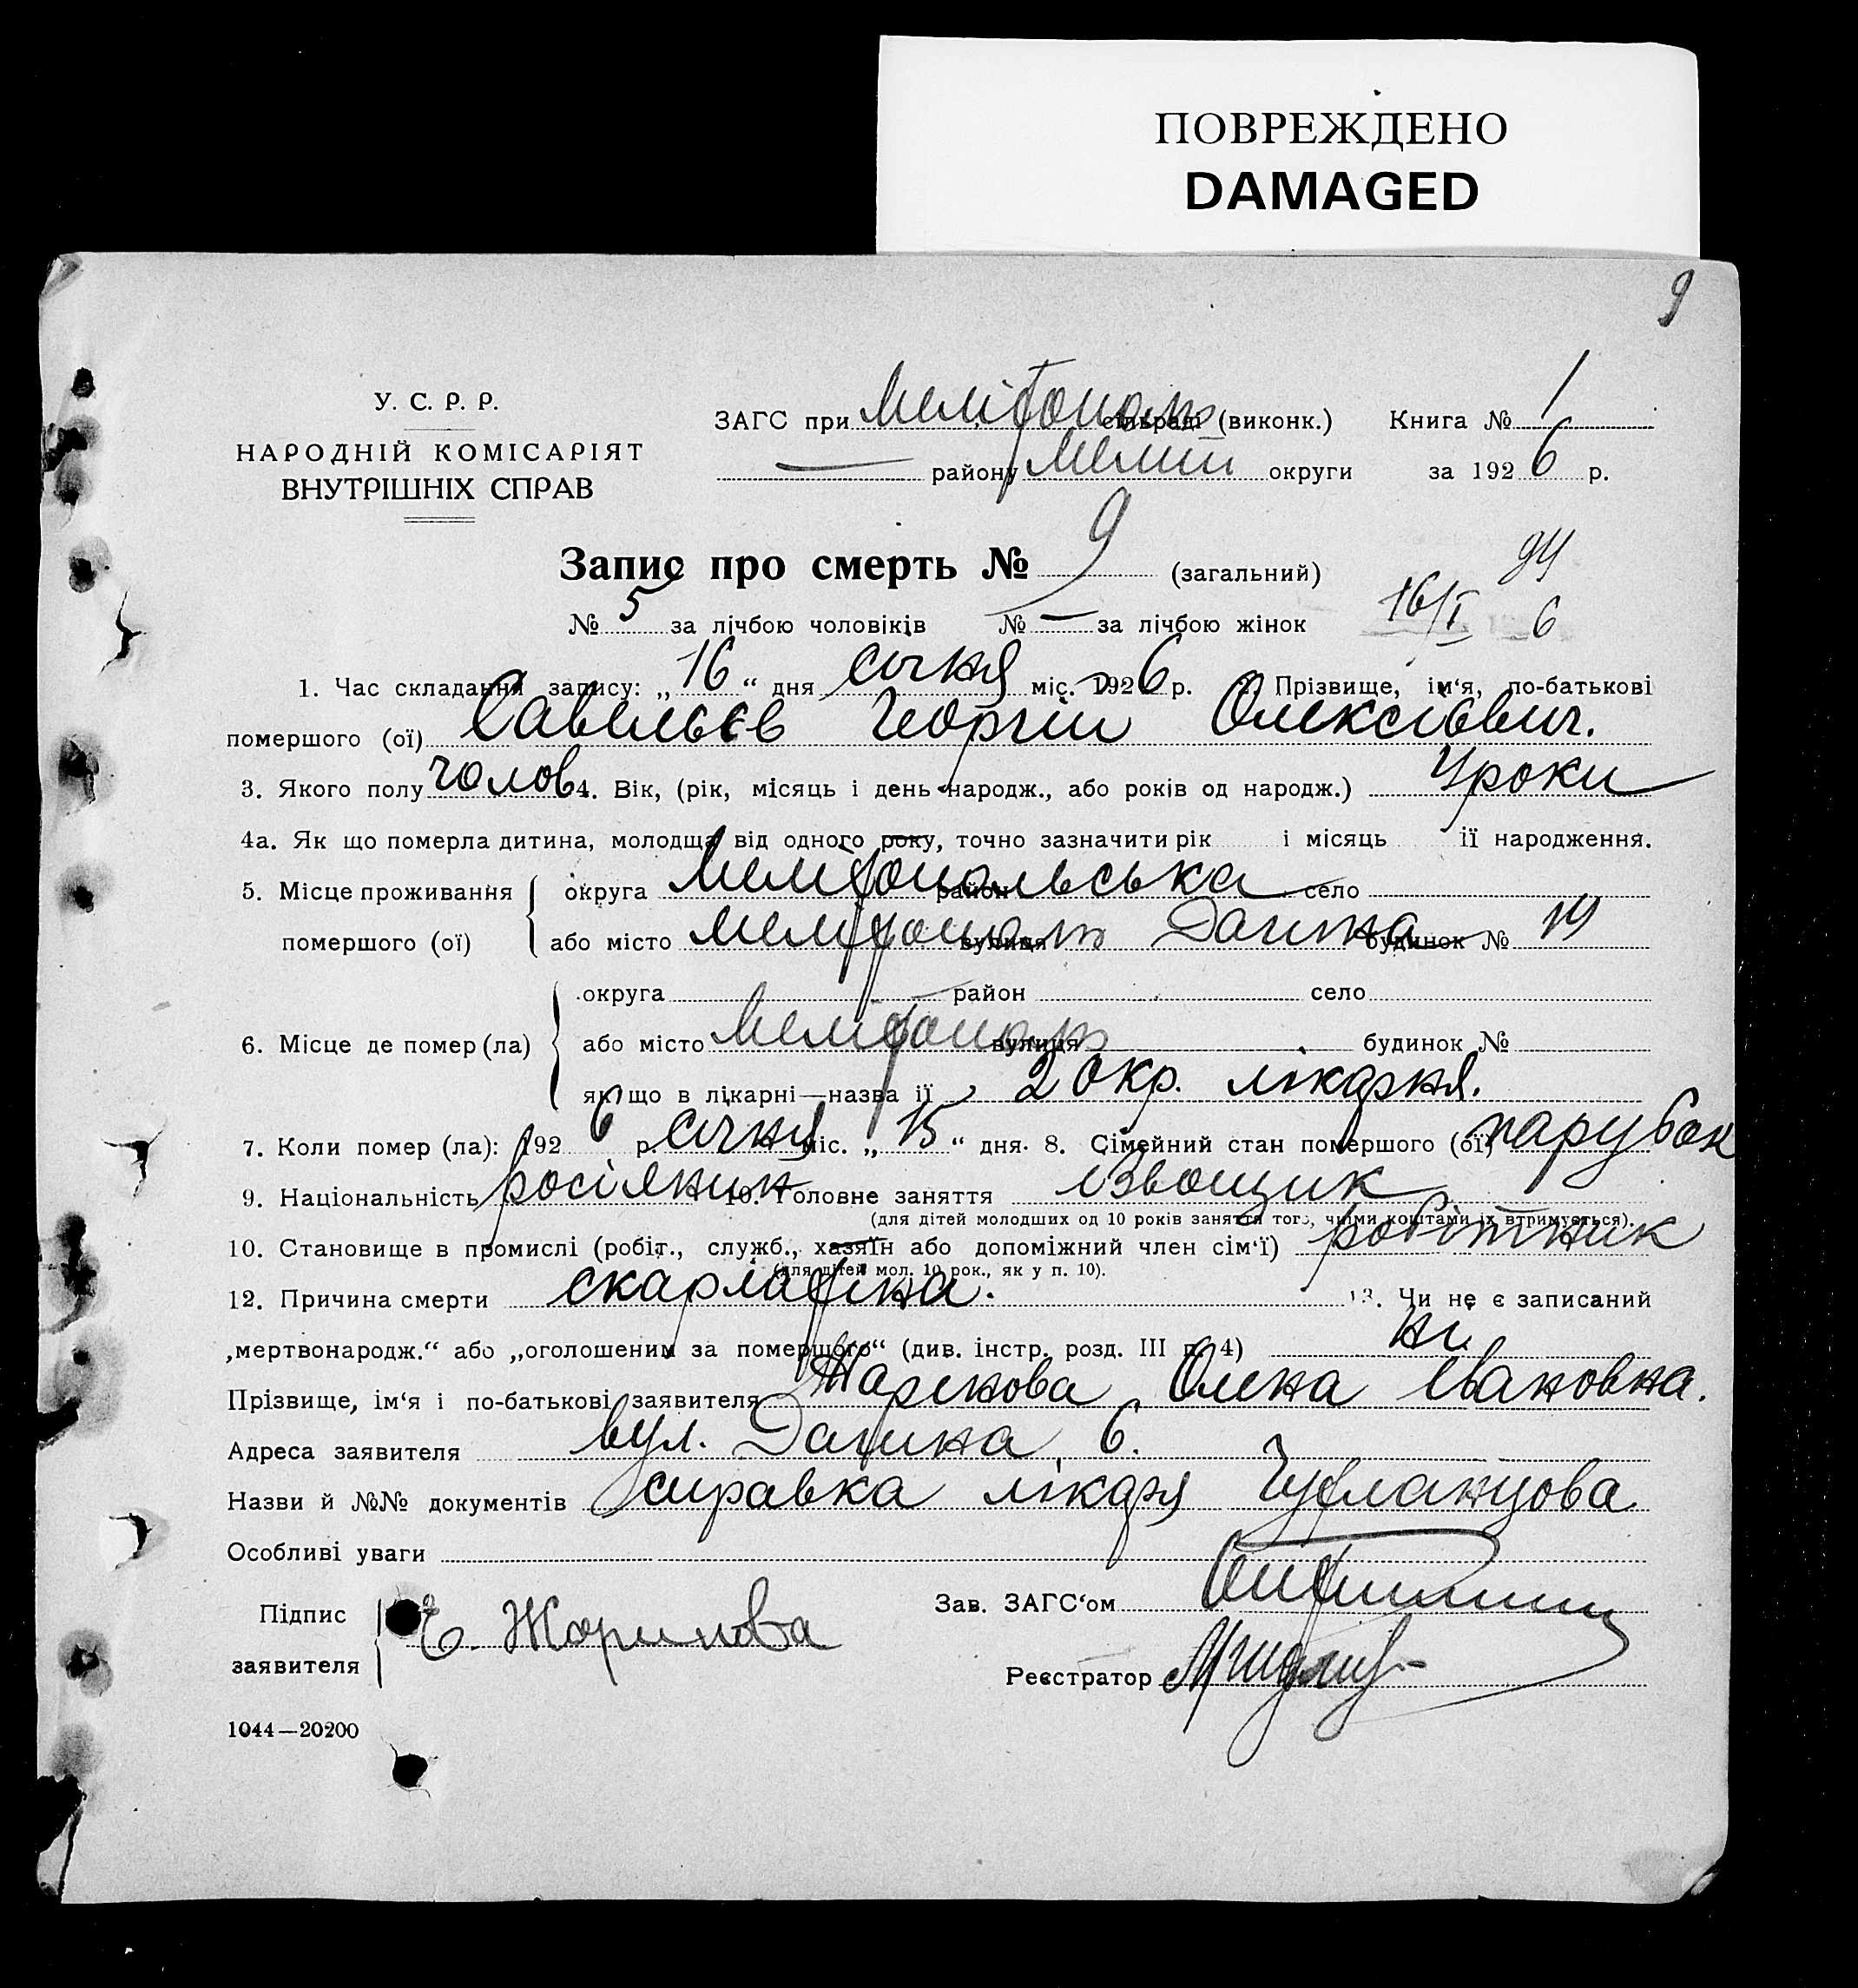 ПОВРЕЖДЕНО
DAMAGED
9
У. С. Р. Р.
НАРОДНІЙ КОМІСАРІЯТ
ВНУТРІШНІХ СПРАВ
ЗАГС при Мелітополь сільраді (виконк.) Книга № 1
— району Меліт округи за 1926 р.
Запис про смерть № 9 (загальний)
№ 5 за лічбою чоловіків № — за лічбою жінок 16/I 6
1. Час складання запису: „16“ дня січня міс. 1926 р. Прізвище, ім‘я, по-батькові
помершого (ої) Савельєв Георгій Олексієвич.
3. Якого полу чолов 4. Вік, (рік, місяць і день народж., або років од народж.) 4 роки
4а. Як що померла дитина, молодща від одного року, точно зазначити рік і місяць ії народження.
5. Місце проживання округа Мелітопольська район село
помершого (ої) або місто Мелітополь вулиця Дачна будинок № 19
округа район село
6. Місце де помер (ла) або місто Мелітополь вулиця будинок №
як що в лікарні—назва ії 2 Окр. лікарня.
7. Коли помер (ла): 1926 р. січня міс. „15“ дня. 8. Сімейний стан помершого (ої) парубок
9. Національність росіянин 10. Головне заняття ізвощик
(для дітей молодших од 10 років заняття того, чиїми коштами їх втримується).
10. Становище в промислі (робіт., служб., хазяїн або допоміжний член сім‘ї) робітник
(для дітей мол. 10 рок., як у п. 10).
12. Причина смерти скарлатина. 13. Чи не є записаний
„мертвонародж.“ або „оголошеним за помершого“ (див. інстр. розд. III п. 4) ні
Прізвище, ім‘я і по-батькові заявителя Жарикова Олена Івановна.
Адреса заявителя вул. Дачна 6.
Назви й №№ документів справка лікаря
Особливі уваги
Підпис
заявителя Е. Жарикова
Зав. ЗАГС‘ом
Реєстратор
1044—20200